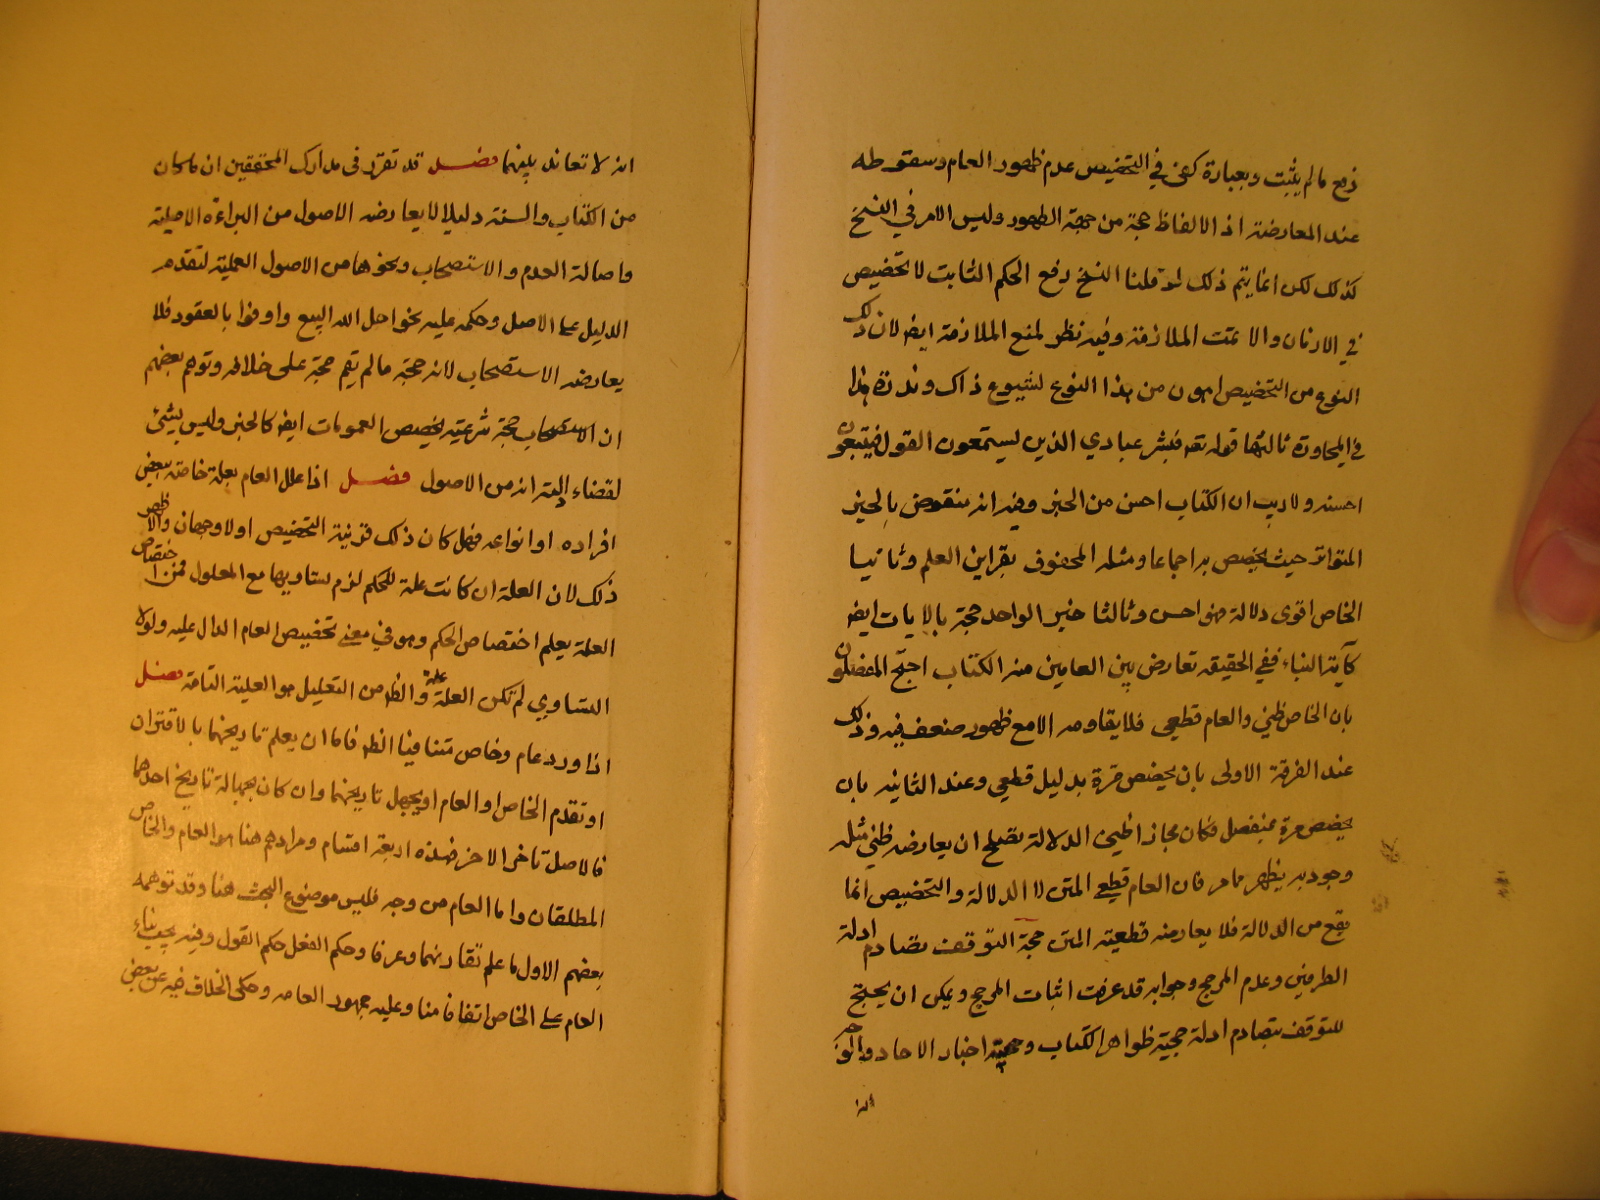 دفع ما لم يثبت وبعبارة كفى في التخصيص عدم ظهور العام وسقوطه
عند المعارضة اذ الالفاظ حجة من جهة الظهور وليس الامر في النسخ
كذلك لكن انما يتم ذلك لو قلنا النسخ رفع الحكم الثابت لا تخصيص
في الازمان والا تمت الملازمة وفيه نظر لمنع الملازمة ايضا لان ذلك
النوع من التخصيص اهون من هذا النوع لشيوع ذاك وندرة هذا
في المحاورة ثالثها قوله تعه فبشر عبادي الذين يستمعون القول فيتبعون
احسنه ولا ريب ان الكتاب احسن من الخبر وفيه انه منقوض بالخبر
المتواتر حيث يخصص به اجماعا ومثله المحفوف بقراين العلم وثانيا
الخاص اقوى دلالة فهو احسن وثالثا خبر الواحد حجة بالايات ايضا
كآية النباء ففي الحقيقة تعارض بين العامين من الكتاب احتج المفصلون
بان الخاص ظني والعام قطعي فلا يقاومه الا مع ظهور ضعف فيه وذلك
عند الفرقة الاولى بان يخصص مرة بدليل قطعي وعند الثانيه بان
يخصص مرة بمنفصل فكان مجازا ظني الدلالة تصلح ان يعارضه ظني مثله
وجوابه يظهر مما مر فان العام قطعي المتن لا الدلالة والتخصيص انما
يقع من الدلالة فلا يعارضه قطعيته المتن حجة التوقف تصادم ادلة
الطرفين وعدم المرجح وجوابه قد عرفت اثبات المرجح ويمكن ان يحتج
للتوقف بتصادم ادلة حجية ظواهر الكتاب وحجية اخبار الاحاد والحق
انه
انه لا تعاند بينهما فصل قد تقرر في مدارك المحققين ان ما كان
من الكتاب والسنة دليلا لا يعارضه الاصول من البراءة الاصلية
واصالة العدم والاستصحاب ونحوها من الاصول العملية لتقدم
الدليل على الاصل وحكمه عليه نحو احل الله البيع واوفوا بالعقود فلا
يعارضه الاستصحاب لانه حجة ما لم يقم حجة على خلافه وتوهم بعضهم
ان الاستصحاب حجة شرعية يخصص العمومات ايضا كالخبر وليس بشئ
لقضاء ادلته انه من الاصول فصل اذا علل العام بعلة خاصة ببعض
افراده او انواعه فهل كان ذلك قرينة التخصيص او لا وجهان والاظهر
ذلك لان العلة ان كانت علة للحكم لزم تساويها مع المعلول فمن اختصاص
العلة يعلم اختصاص الحكم وهو في معنى تخصيص العام الدال عليه ولولا
التساوي لم تكن العلة علة والظاهر من التعليل هو العلية التامة فصل
اذا ورد عام وخاص متنافيا الظاهر فاما ان يعلم تاريخهما بالاقتران
او تقدم الخاص او العام او يجهل تاريخهما وان كان بجهالة تاريخ احدهما
فالاصل تاخر الاخر فهذه اربعة اقسام ومرادهم هنا هو العام والخاص
المطلقان واما العام من وجه فليس موضوع البحث هنا وقد توهمه
بعضهم الاول ما علم تقارنهما وعرفا وحكم الفعل حكم القول وفيه يجب بناء
العام على الخاص اتفاقا منا وعليه جمهور العامه وحكى الخلاف فيه عن بعض